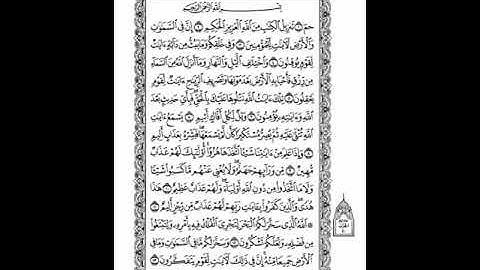 بِسْمِ ٱللَّهِ ٱلرَّحْمَٰنِ ٱلرَّحِيمِ
حمٓ ١ تَنزِيلُ ٱلْكِتَٰبِ مِنَ ٱللَّهِ ٱلْعَزِيزِ ٱلْحَكِيمِ ٢ إِنَّ فِى ٱلسَّمَٰوَٰتِ
وَٱلْأَرْضِ لَءَايَٰتٍ لِّلْمُؤْمِنِينَ ٣ وَفِى خَلْقِكُمْ وَمَا يَبُثُّ مِن دَآبَّةٍ ءَايَٰتٌ
لِّقَوْمٍ يُوقِنُونَ ٤ وَٱخْتِلَٰفِ ٱلَّيْلِ وَٱلنَّهَارِ وَمَآ أَنزَلَ ٱللَّهُ مِنَ ٱلسَّمَآءِ
مِن رِّزْقٍ فَأَحْيَا بِهِ ٱلْأَرْضَ بَعْدَ مَوْتِهَا وَتَصْرِيفِ ٱلرِّيَٰحِ ءَايَٰتٌ لِّقَوْمٍ
يَعْقِلُونَ ٥ تِلْكَ ءَايَٰتُ ٱللَّهِ نَتْلُوهَا عَلَيْكَ بِٱلْحَقِّ فَبِأَىِّ حَدِيثٍۭ بَعْدَ
ٱللَّهِ وَءَايَٰتِهِۦ يُؤْمِنُونَ ٦ وَيْلٌ لِّكُلِّ أَفَّاكٍ أَثِيمٍ ٧ يَسْمَعُ ءَايَٰتِ
ٱللَّهِ تُتْلَىٰ عَلَيْهِ ثُمَّ يُصِرُّ مُسْتَكْبِرًا كَأَن لَّمْ يَسْمَعْهَا فَبَشِّرْهُ بِعَذَابٍ أَلِيمٍ
٨ وَإِذَا عَلِمَ مِنْ ءَايَٰتِنَا شَيْـًٔا ٱتَّخَذَهَا هُزُوًا أُو۟لَٰٓئِكَ لَهُمْ عَذَابٌ
مُّهِينٌ ٩ مِّن وَرَآئِهِمْ جَهَنَّمُ وَلَا يُغْنِى عَنْهُم مَّا كَسَبُوا۟ شَيْـًٔا
وَلَا مَا ٱتَّخَذُوا۟ مِن دُونِ ٱللَّهِ أَوْلِيَآءَ وَلَهُمْ عَذَابٌ عَظِيمٌ ١٠ هَٰذَا
هُدًى وَٱلَّذِينَ كَفَرُوا۟ بِـَٔايَٰتِ رَبِّهِمْ لَهُمْ عَذَابٌ مِّن رِّجْزٍ أَلِيمٌ ١١
ٱللَّهُ ٱلَّذِى سَخَّرَ لَكُمُ ٱلْبَحْرَ لِتَجْرِىَ ٱلْفُلْكُ فِيهِ بِأَمْرِهِۦ وَلِتَبْتَغُوا۟
مِن فَضْلِهِۦ وَلَعَلَّكُمْ تَشْكُرُونَ ١٢ وَسَخَّرَ لَكُم مَّا فِى ٱلسَّمَٰوَٰتِ وَمَا فِى
ٱلْأَرْضِ جَمِيعًا مِّنْهُ إِنَّ فِى ذَٰلِكَ لَءَايَٰتٍ لِّقَوْمٍ يَتَفَكَّرُونَ ١٣